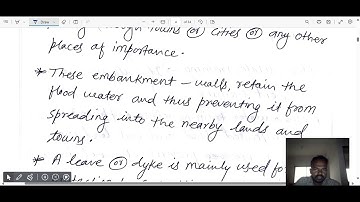 through Towns (or) Cities (or) any other
places of importance.
* These embankment - walls, retain the
flood water and thus preventing it from
spreading into the nearby lands and
towns.
* A leave (or) dyke is mainly used for